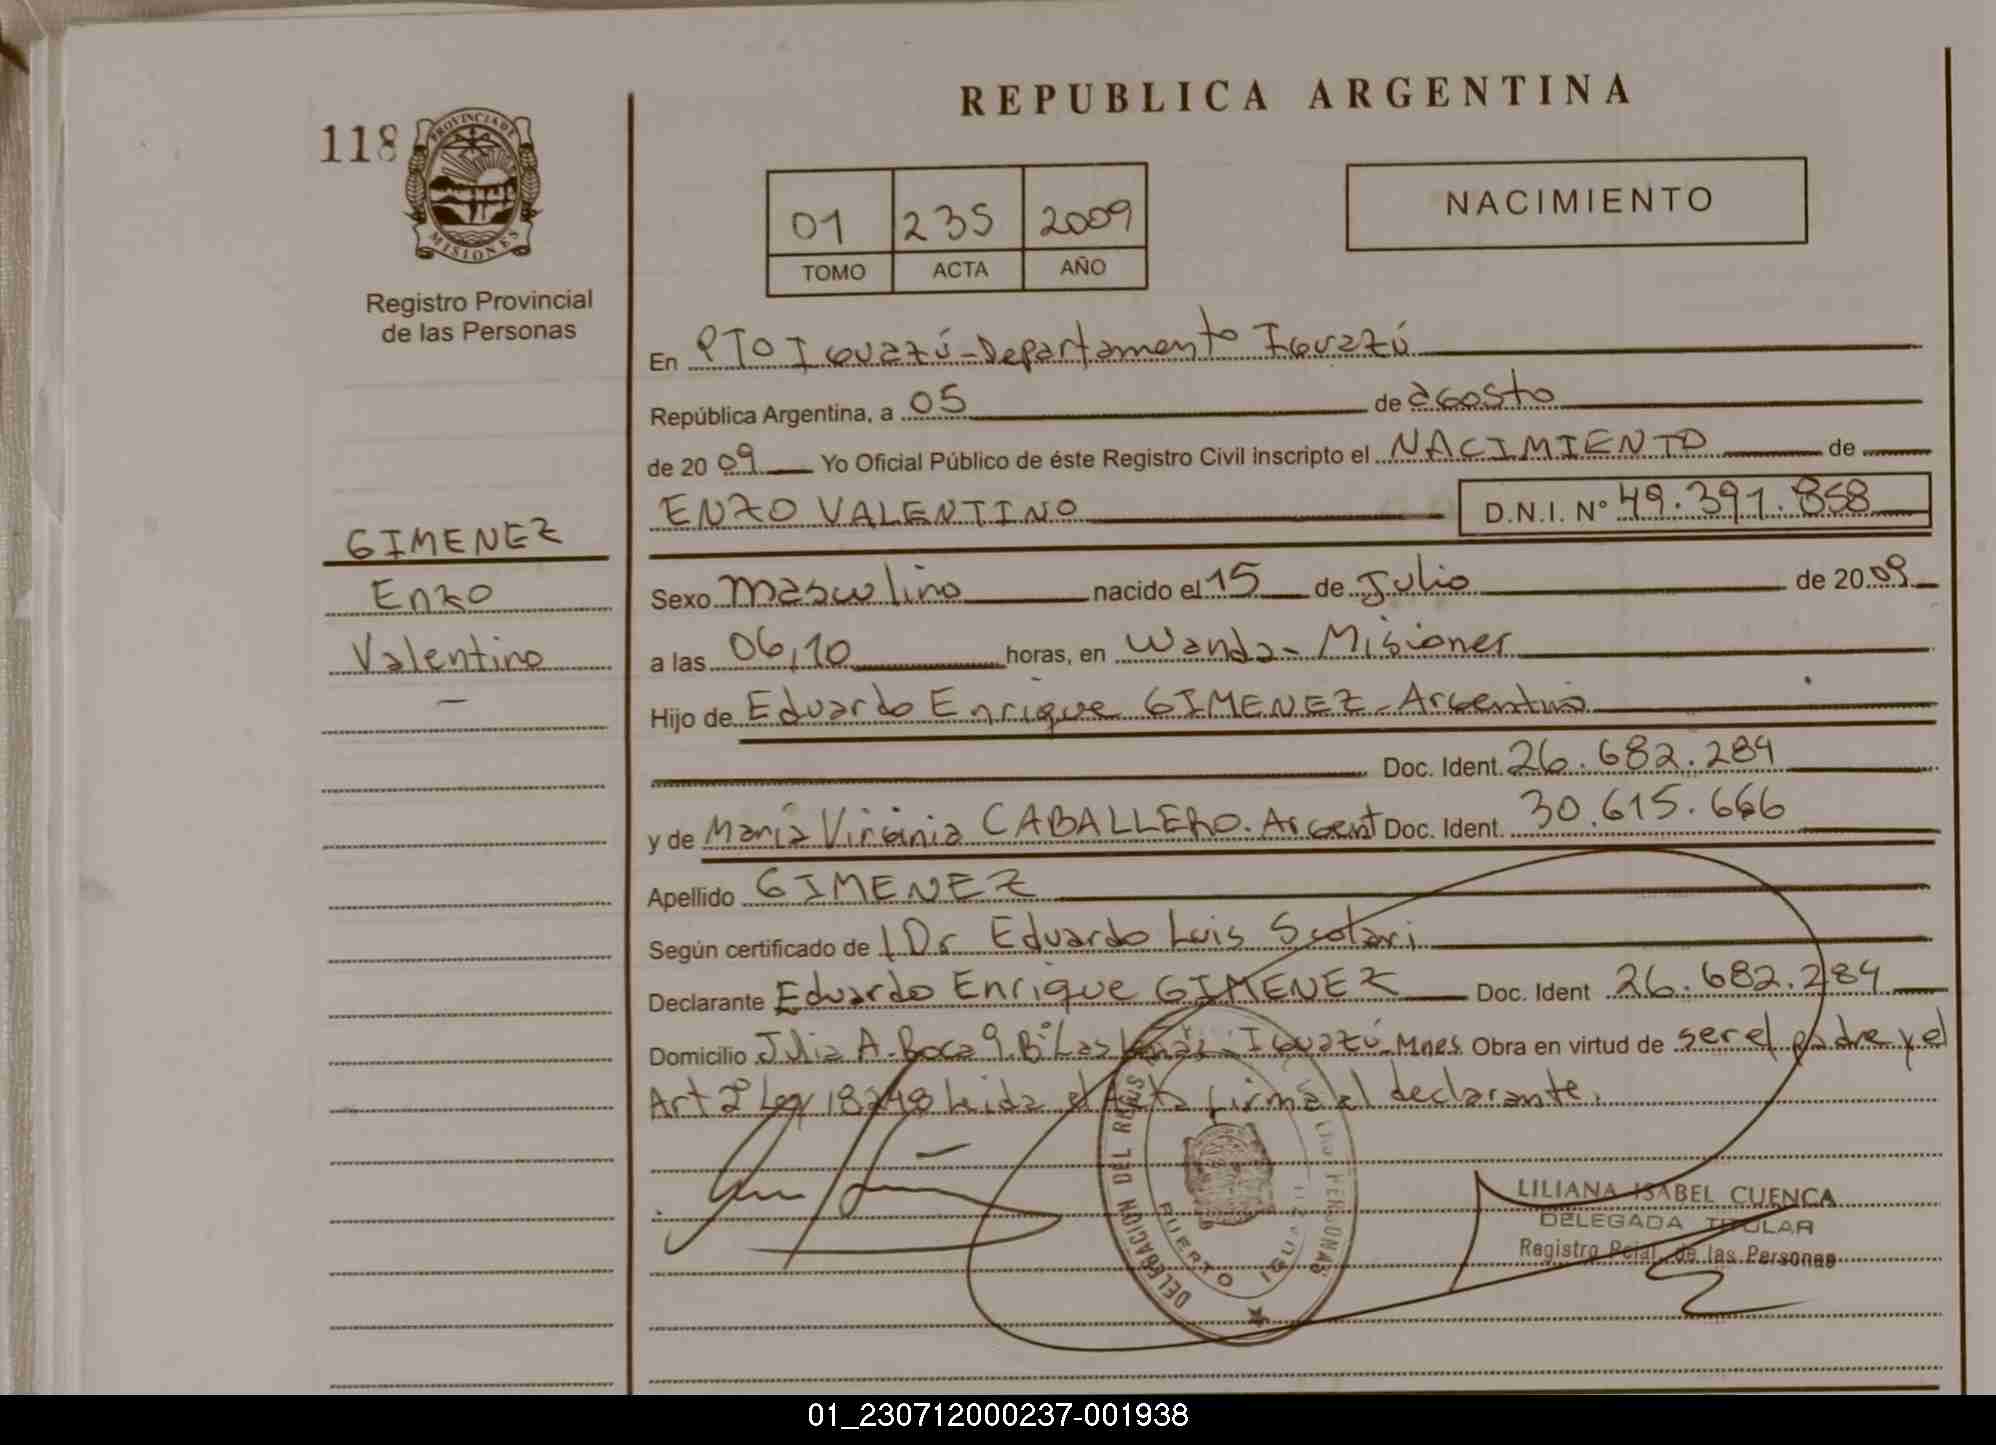 REPUBLICA ARGENTINA
118
PROVINCIA DE
MISIONES
Registro Provincial
de las Personas
01 235 2009
TOMO ACTA AÑO
NACIMIENTO
En PTO Iguazú - Departamento Iguazú
República Argentina, a 05 de agosto
de 20 09 Yo Oficial Público de éste Registro Civil inscripto el NACIMIENTO de
ENZO VALENTINO D.N.I. N° 49.391.858
GIMENEZ
Enzo
Valentino
Sexo masculino nacido el 15 de Julio de 20 09
a las 06,10 horas, en Wanda - Misiones
Hijo de Eduardo Enrique GIMENEZ - Argentino
Doc. Ident. 26.682.284
y de María Virginia CABALLERO. Argent Doc. Ident. 30.615.666
Apellido GIMENEZ
Según certificado de Dr Eduardo Luis Scotari
Declarante Eduardo Enrique GIMENEZ Doc. Ident 26.682.284
Domicilio Julia A. Roca 9. B° Las Iguazú - Mnes Obra en virtud de ser el padre y el
Art 2° Ley 18248 leida el Acta firma el declarante.
DELEGACION DEL REGIS PERSONAS
PUERTO IGUAZU
LILIANA ISABEL CUENCA
DELEGADA TITULAR
Registro Pcial. de las Personas
01_230712000237-001938